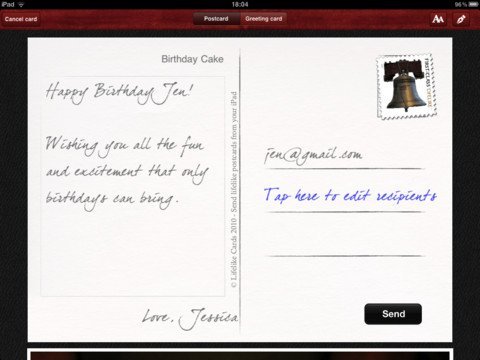 iPad
18:04
96%
Cancel card
Postcard
Greeting card
AA
Birthday Cake
Happy Birthday Jen!
Wishing you all the fun
and excitement that only
birthdays can bring.
Love, Jessica
© Lifelike Cards 2010 - Send lifelike postcards from your iPad
FIRST-CLASS
jen@gmail.com
Tap here to edit recipients
Send